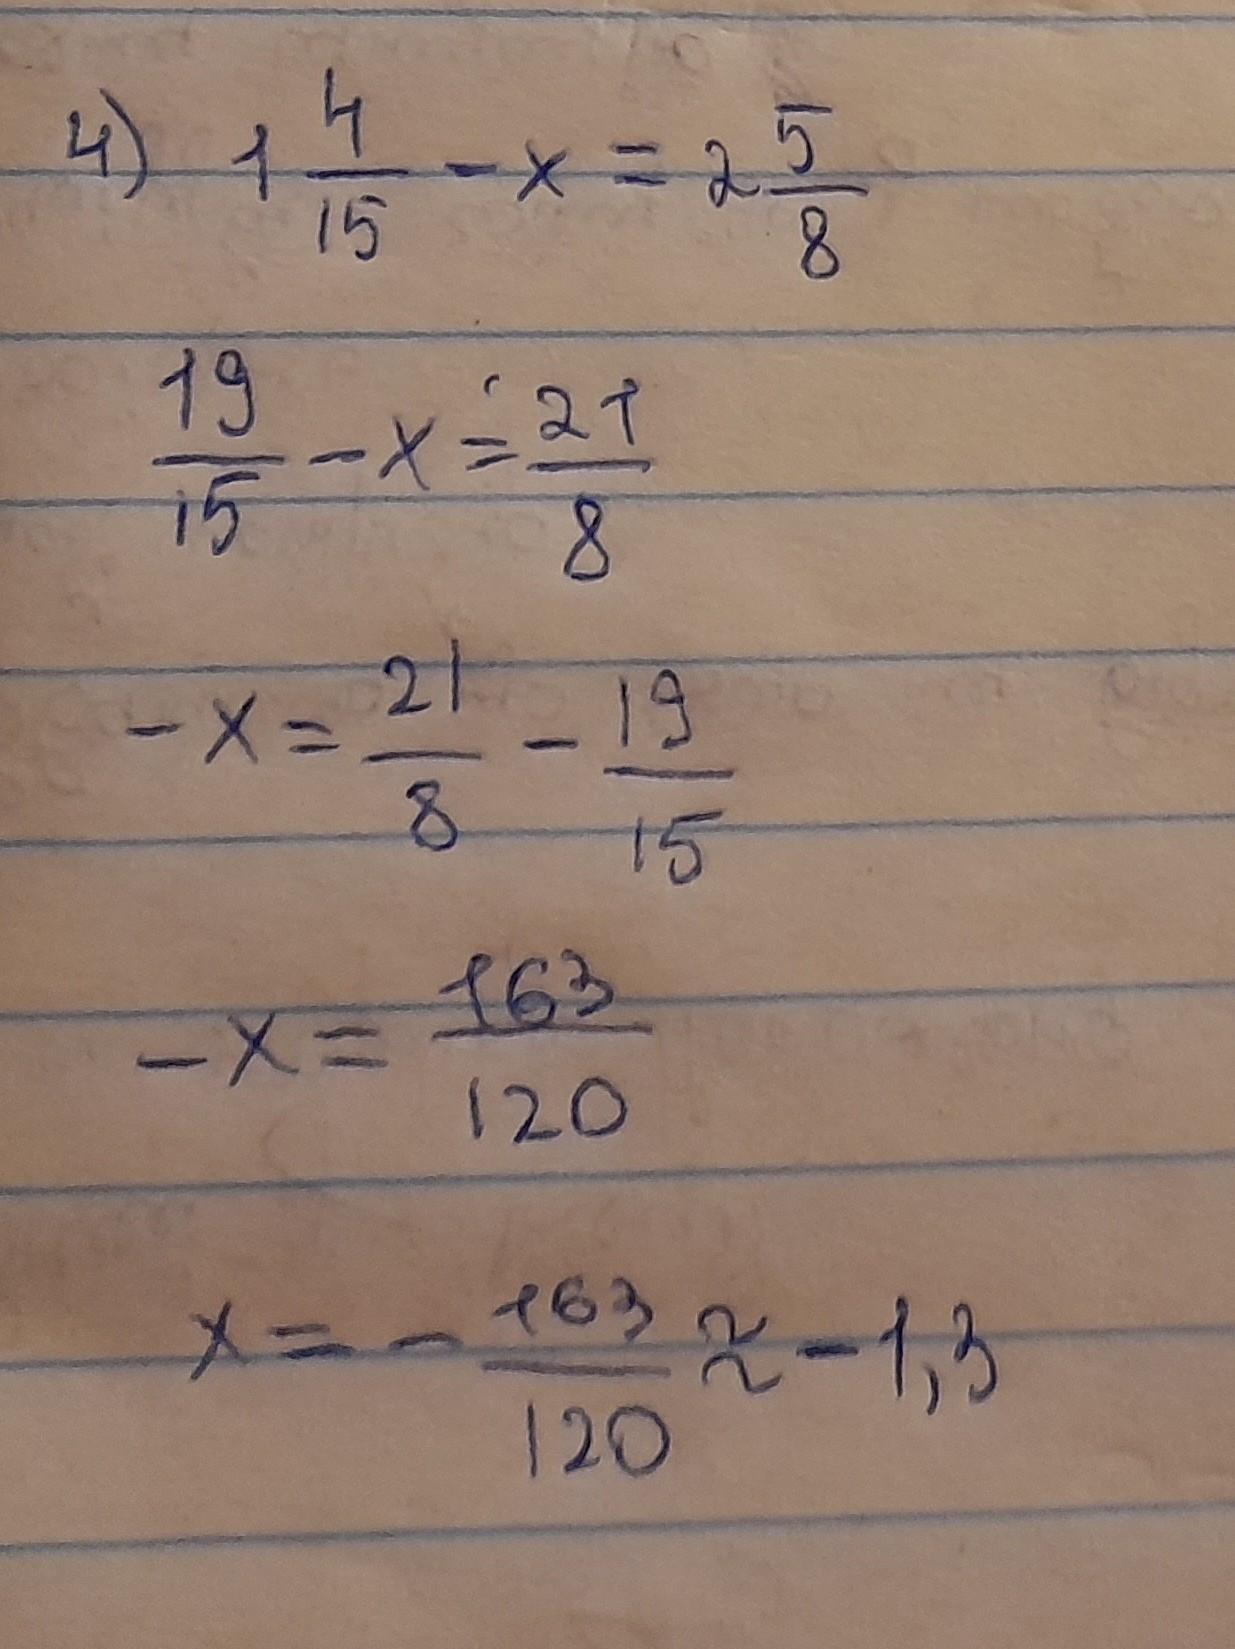 4) 1 4/15 - x = 2 5/8
19/15 - x = 21/8
- x = 21/8 - 19/15
- x = 163/120
x = - 163/120 ≈ - 1,3